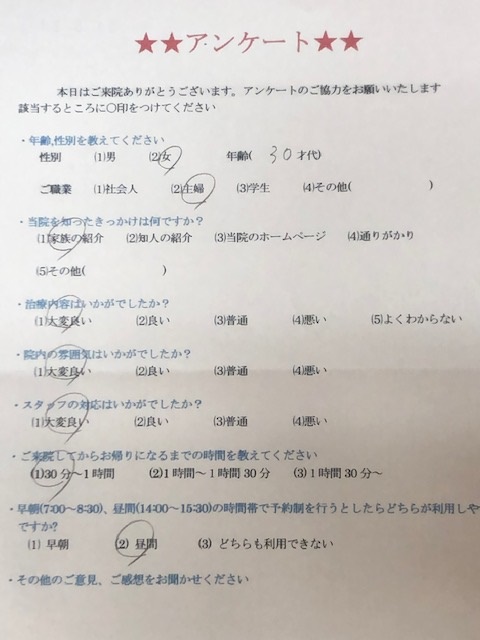 ★★アンケート★★
本日はご来院ありがとうございます。アンケートのご協力をお願いいたします
該当するところに○印をつけてください
・年齢,性別を教えてください
性別 (1)男 (2)女 年齢( 30才代)
ご職業 (1)社会人 (2)主婦 (3)学生 (4)その他( )
・当院を知ったきっかけは何ですか？
(1)家族の紹介 (2)知人の紹介 (3)当院のホームページ (4)通りがかり
(5)その他( )
・治療内容はいかがでしたか？
(1)大変良い (2)良い (3)普通 (4)悪い (5)よくわからない
・院内の雰囲気はいかがでしたか？
(1)大変良い (2)良い (3)普通 (4)悪い
・スタッフの対応はいかがでしたか？
(1)大変良い (2)良い (3)普通 (4)悪い
・ご来院してからお帰りになるまでの時間を教えてください
(1)30分～1時間 (2)1時間～1時間30分 (3)1時間30分～
・早朝(7:00～8:30)、昼間(14:00～15:30)の時間帯で予約制を行うとしたらどちらが利用しや
ですか?
(1) 早朝 (2) 昼間 (3) どちらも利用できない
・その他のご意見、ご感想をお聞かせください